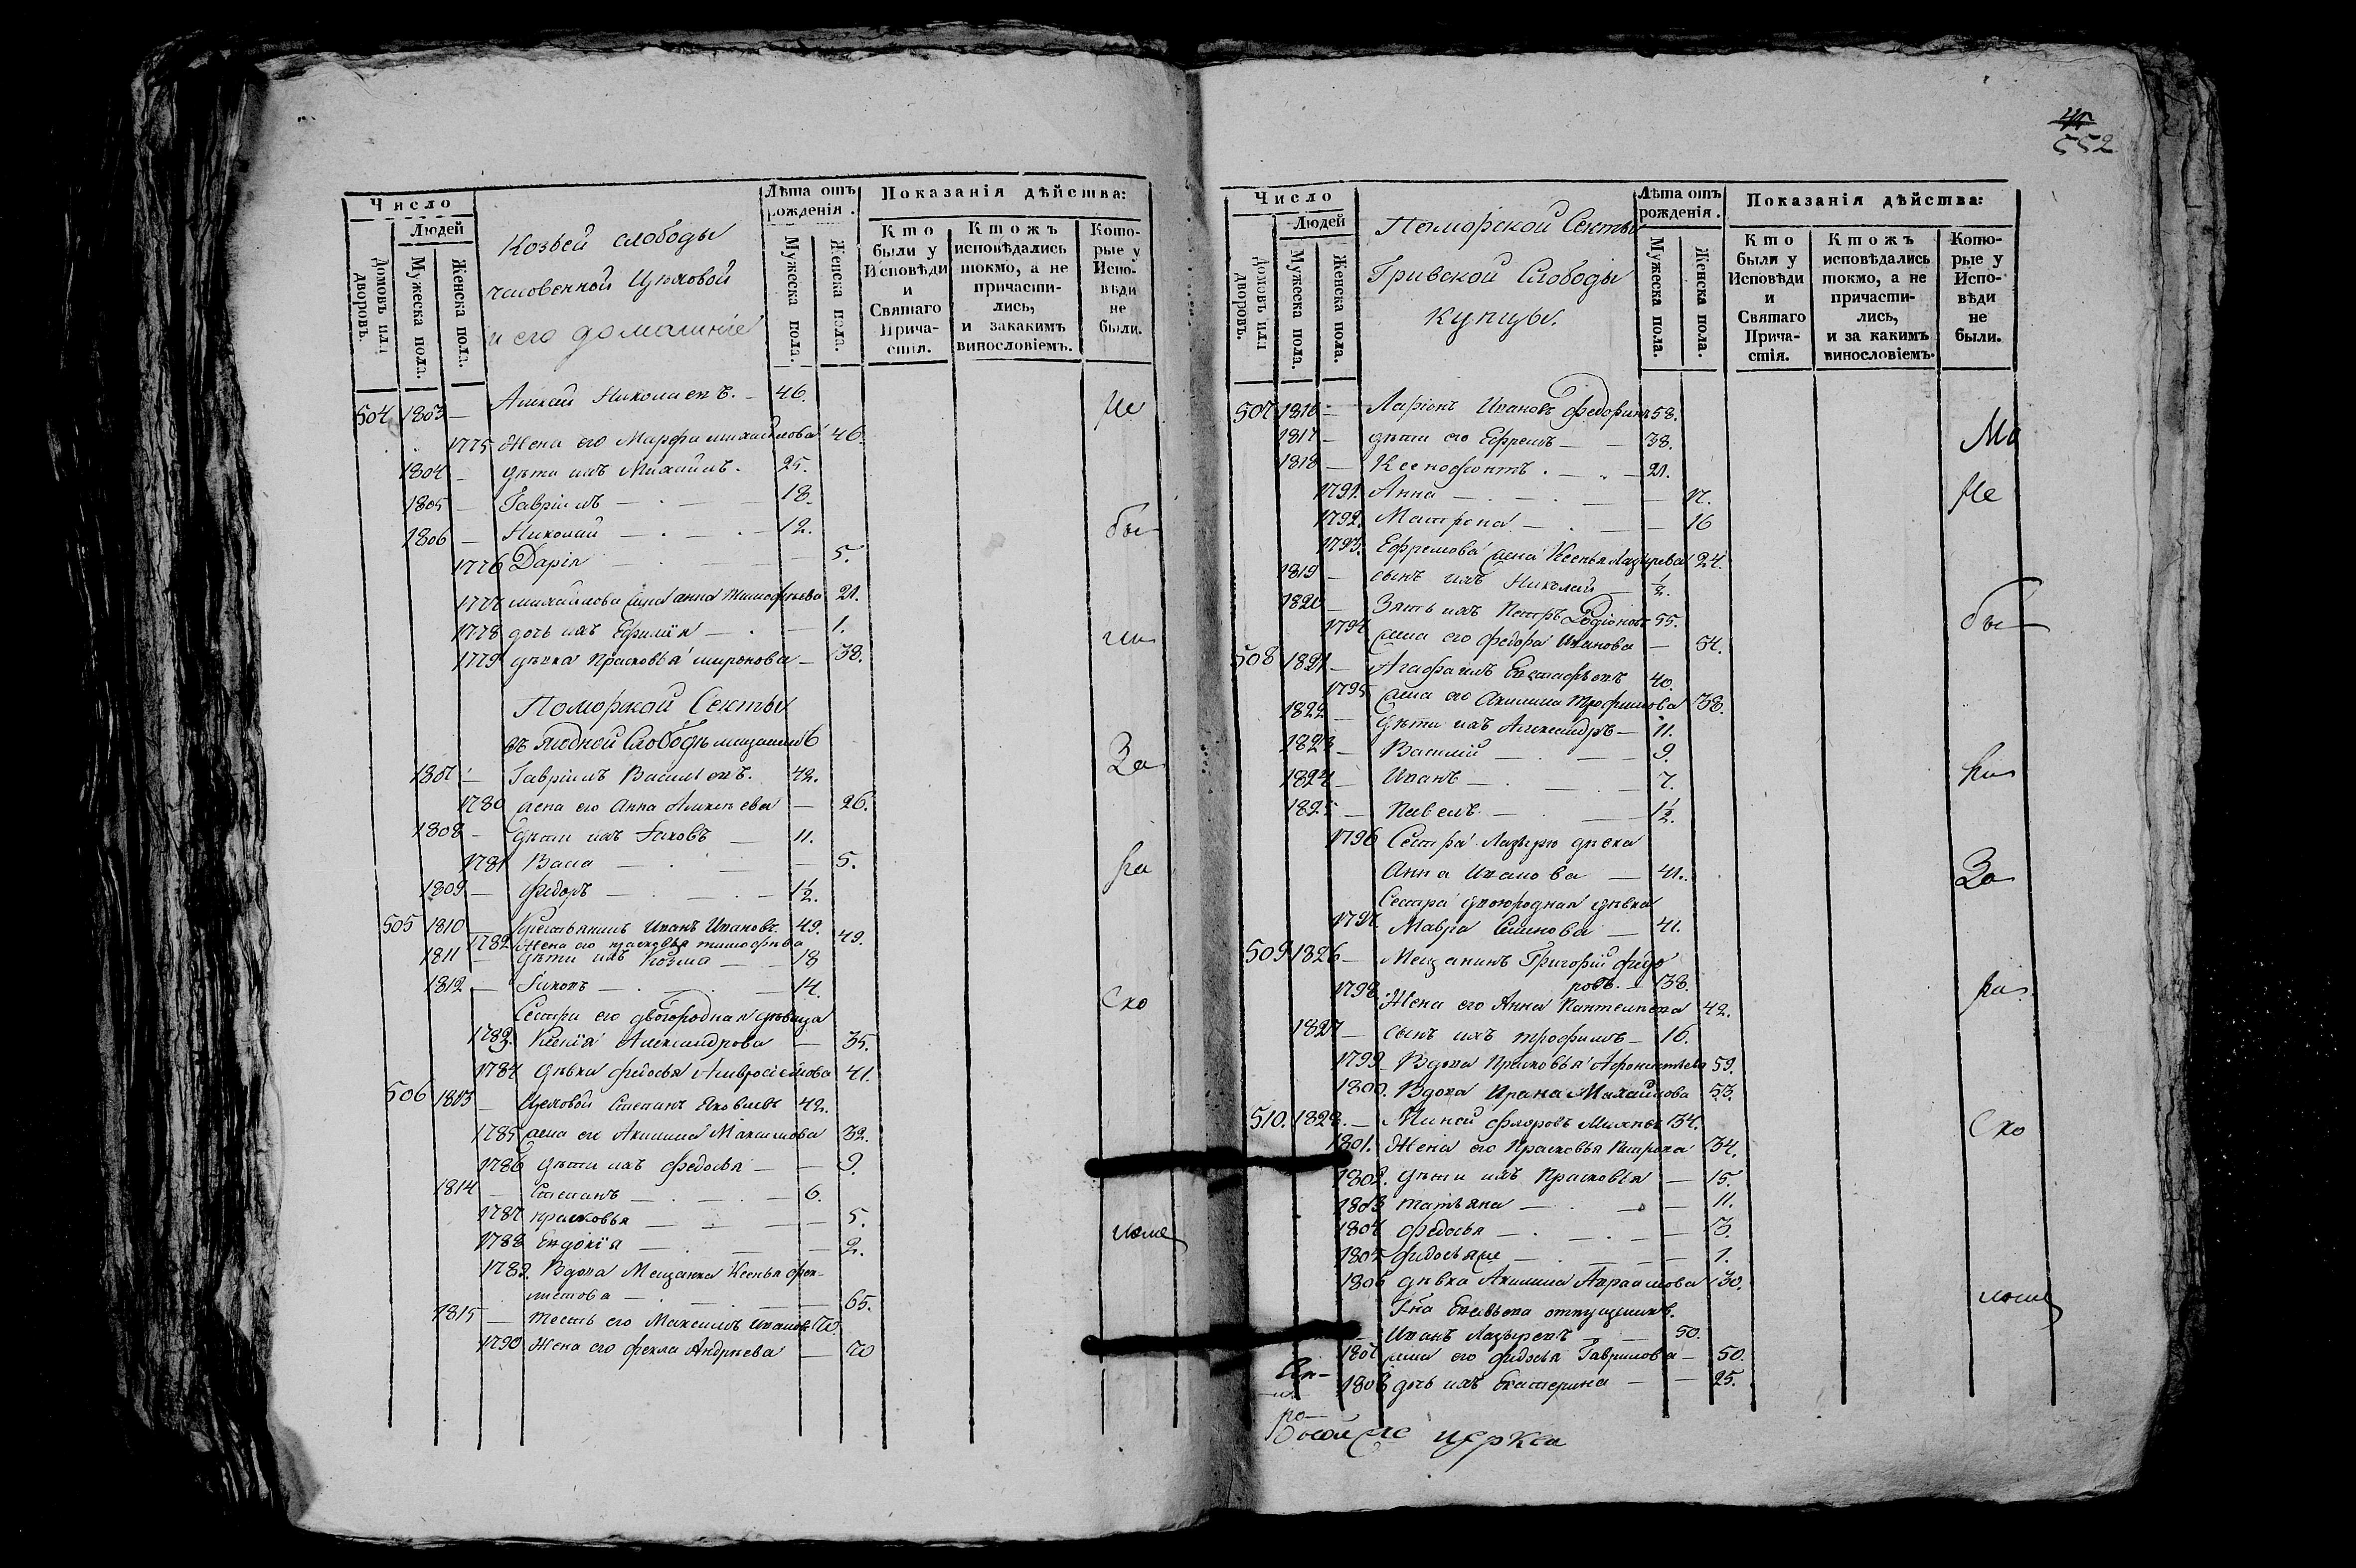 Число
Людей
Домовъ или дворовъ.
Мужеска пола.
Женска пола.
Козьей слободы
часовенной Цеховой
и его домашніе
Лѣта отъ рожденія.
Мужеска пола.
Женска пола.
Показанія дѣйства:
Кто были у Исповѣди и Святаго Причастія.
Ктожъ исповѣдались токмо, а не причастились, и закакимъ винословіемъ.
Которые у Исповѣди не были.
504 1803 — Алексѣй Николаевъ. — 46. Не
1775 Жена его Марфа михайлова 46.
1804 — дѣти ихъ Михаилъ. 25.
1805 — Гавріилъ — 18.
1806 — Николай — 12. бы
1776 Дарія — 5.
1777 михайлова жена анна тимофѣева 21.
1778 дочь ихъ Ефимія — 1. ли
1779 дѣвка Прасковья миронова — 38.
Поморской Секты
въ ямной Слободѣ мещане
1807 — Гавріилъ Васильевъ. 42. За
1780 жена его Анна Алексѣева — 26.
1808 — дѣти ихъ Іаковъ — 11.
1781 Васса — 5. ра
1809 — Федоръ — 1½.
505 1810 — Крестьянинъ Иванъ Ивановъ. 49.
1782 Жена его прасковья тимофѣева 49.
1811 — дѣти ихъ Козма — 18
1812 — Іаковъ — 14. Ско
Сестра его двоюродная дѣвица
1783. Ксенія Александрова — 35.
1784 дѣвка федосья Амвросимова 41.
506 1813 — Цеховой Степанъ Яковлевъ 42.
1785 жена его Акилина Максимова 32.
1786 дѣти ихъ федосья — 9.
1814 — Степанъ — 6.
1787 прасковья — 5. ломъ
1788 Евдокія — 2.
1789. Вдова Мещанка Ксенья феок-
тистова — 65.
1815 — тесть его Максимъ Ивановъ 70.
1790 Жена его фекла Андреева — 70
552
Число
Людей
Домовъ или дворовъ.
Мужеска пола.
Женска пола.
Поморской Секты
Гривской Слободы
купцы.
Лѣта отъ рожденія.
Мужеска пола.
Женска пола.
Показанія дѣйства:
Кто были у Исповѣди и Святаго Причастія.
Ктожъ исповѣдались токмо, а не причастились, и за какимъ винословіемъ.
Которые у Исповѣди не были.
507 1816 — Ларіонъ Ивановъ 58.
1817 — дѣти его Ефремъ — 38.
1818 — Ксенофонтъ. — 21.
1791. Анна — 17. Не
1792. Матрона — 16
1793. Ефремова жена Ксенья Лазырева 24.
1819 — сынъ ихъ Николай — ½.
1820 — Зять ихъ Петръ Родіоновъ 55. бы
1794 жена его федора Иванова — 54.
508 1821 — Агафаилъ Евстафьевъ 40.
1795 жена его Акилина Трофимова 38.
1822 — дѣти ихъ Александръ — 11.
1823 — Василій — 9.
1824 — Иванъ — 7.
1825 — Павелъ. — 1½.
1796 Сестра Лазырю дѣвка
Анна Иванова — 41. За
Сестра двоюродная дѣвка
1797. Мавра Семенова — 41.
509 1826 — Мещанинъ Григорій фёдо
ровъ. — 38. ра
1798. Жена его Анна Пантелѣева 42.
1827 — сынъ ихъ трофимъ — 16.
1799 — Вдова Прасковья 59.
1800. Вдова Ирина Михайлова 53.
510. 1828. — Миней фроровъ 34. Ско
1801. Жена его Прасковья Петрова 34.
1802. дѣти ихъ Прасковья — 15.
1803 татьяна — 11.
1804 федосья — 3.
1805 федосья же — 1.
1806 дѣвка Акилина Авраамова 30.
отпущенникъ. ломъ
— Иванъ Лазыревъ — 50.
1807 жена его федосья Гаврилова — 50.
1808 дочь ихъ Екатерина — 25.
церкви